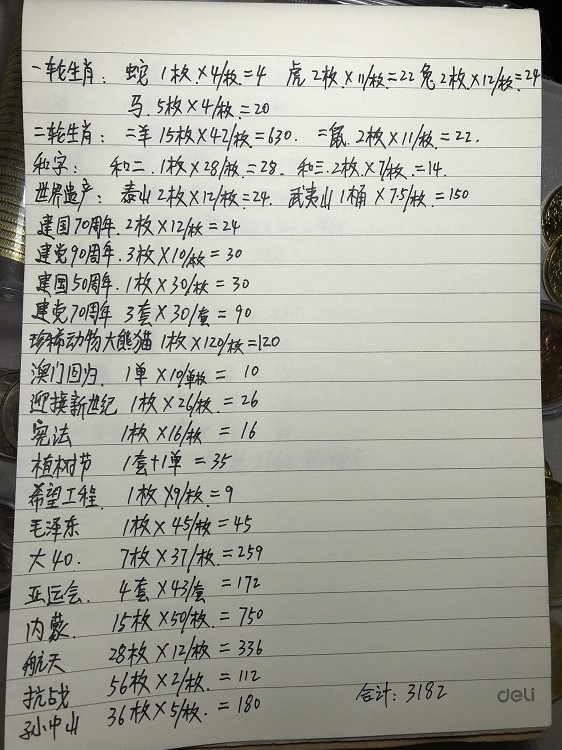 一轮生肖: 蛇 1枚×4/枚=4 虎 2枚×11/枚=22 兔 2枚×12/枚=24
马 5枚×4/枚=20
二轮生肖: 二羊 15枚×42/枚=630. 二鼠 2枚×11/枚=22.
和字: 和二 1枚×28/枚=28. 和三 2枚×7/枚=14.
世界遗产: 泰山 2枚×12/枚=24. 武夷山 1桶×7.5/枚=150
建国70周年. 2枚×12/枚=24
建党90周年. 3枚×10/枚=30
建国50周年. 1枚×30/枚=30
建党70周年 3套×30/套=90
珍稀动物大熊猫 1枚×120/枚=120
澳门回归 1单×10/单枚=10
迎接新世纪 1枚×26/枚=26
宪法 1枚×16/枚=16
植树节 1套+1单=35
希望工程 1枚×9/枚=9
毛泽东 1枚×45/枚=45
大40. 7枚×37/枚=259
亚运会. 4套×43/套=172
内蒙. 15枚×50/枚=750
航天 28枚×12/枚=336
抗战 56枚×2/枚=112
孙中山 36枚×5/枚=180
合计: 3182
deli